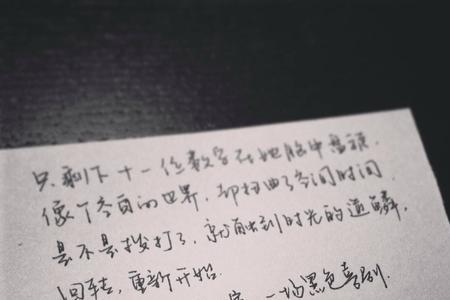 只剩下十一位数字在她脑中盘旋.
像个空白的世界,却扭曲了空间时间
是不是拨打了,就能回到时光的逆鳞,
回转,重新开始.
一场黑色喜剧.